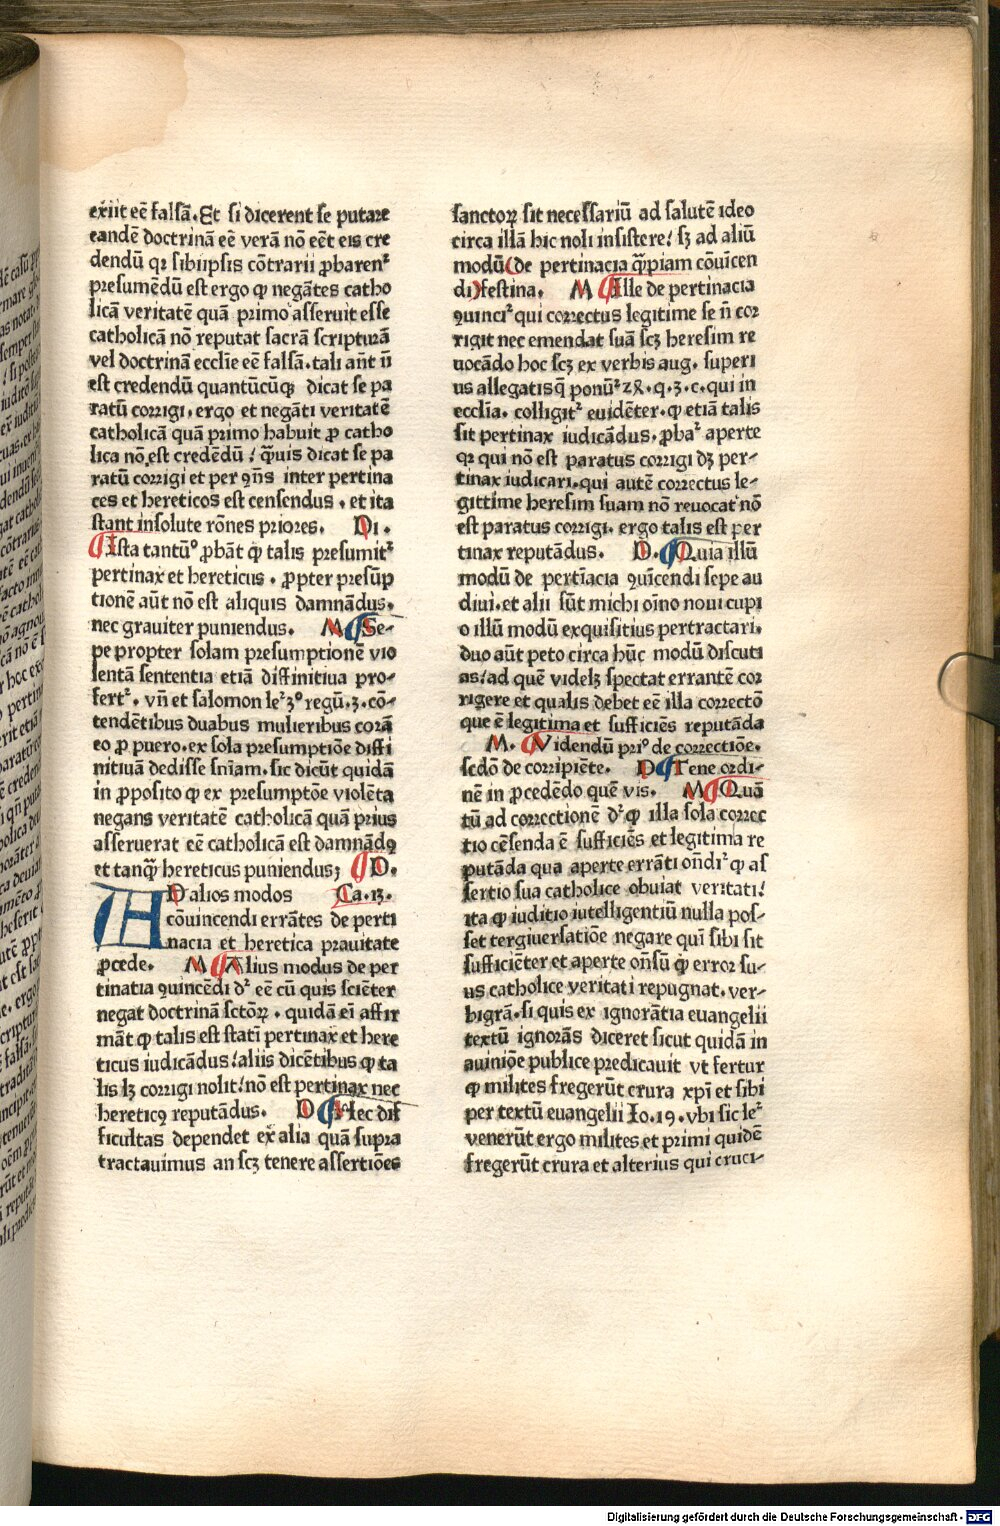 exiit eē falsā. Et si dicerent se putare
eandē doctrinā eē verā nō eēt eis cre
dendū qꝛ sibiipsis cōtrarii ꝓbarenᷣ
presumēdū est ergo ꝙ negātes catho
licā veritatē quā primo asseruit esse
catholicā nō reputat sacrā scripturā
vel doctrinā ecclīe eē falsā. tali aūt ñ
est credendū quantūcūqꝫ dicat se pa
ratū corrigi. ergo et negāti veritatē
catholicā quā primo habuit ꝓ catho
lica nō est credēdū / qͣuis dicat se pa
ratū corrigi et per ꝯñs inter pertina
ces et hereticos est censendus . et ita
stant insolute rōnes priores. Di.
¶Ista tantū ꝓbāt ꝙ talis presumitᷣ
pertinax et hereticus . ꝓpter presūp
tionē aūt nō est aliquis damnādus.
nec grauiter puniendus. M ¶Se-
pe propter solam presumptionē vio
lentā sententia etiā diffinitiua pro-
fertᷣ. vñ et salomon leᷣ ꝫͦ regū.3.cō-
tendētibus duabus mulieribus corā
eo ꝓ puero. ex sola presumptiōe diffi
nitiuā dedisse sniam. sic dicūt quidā
in ꝓposito ꝙ ex presumptōe violēta
negans veritatē catholicā quā prius
asseruerat eē catholicā est damnādꝯ
et tanqͣ hereticus puniendus; ¶D.
AD alios modos Ca.13.
cōuincendi errātes de perti
nacia et heretica prauitate
ꝓcede. M ¶Alius modus de per
tinatia ꝯuincēdi dᷣ eē cū quis sciēter
negat doctrinā sctōꝝ . quidā eī affir
māt ꝙ talis est statī pertinax et here
ticus iudicādus / aliis dicētibus ꝙ ta
lis lꝫ corrigi nolit / nō est pertinax nec
hereticꝯ reputādus. D ¶Hec dif
ficultas dependet ex alia quā supra
tractauimus an scꝫ tenere assertiōes
sanctoꝝ sit necessariū ad salutē ideo
circa illā hic noli insistere / sꝫ ad aliū
modū (de pertinacia qͣmpiam cōuicen
di) festina. M ¶Ille de pertinacia
ꝯuincitᷣ qui correctus legitime se ñ cor
rigit nec emendat suā scꝫ heresim re
uocādo hoc scꝫ ex verbis aug. superi
us allegatis q̄ ponūtᷣ 24.q.3.c. qui in
ecclīa. colligitᷣ euidēter. ꝙ etiā talis
sit pertinax iudicādus. ꝓbatᷣ aperte
qꝛ qui nō est paratus corrigi dꝫ per-
tinax iudicari. qui autē correctus le-
gittime heresim suam nō reuocat nō
est paratus corrigi. ergo talis est per
tinax reputādus. D. ¶Quia illū
modū de pertīacia ꝯuīcendi sepe au
diui. et alii sūt michi oīno noui cupi
o illū modū exquisitius pertractari.
duo aūt peto circa hūc modū discuti
as / ad quē videlꝫ spectat errantē cor
rigere et qualis debet eē illa correctō
que ē legitima et sufficiēs reputāda
M. ¶Videndū priͦ de correctiōe.
secdō de corripiēte. D ¶Tene ordi-
nē in ꝓcedēdo quē vis. M ¶Quā
tū ad correctionē dᷣ ꝙ illa sola correc
tio cēsenda ē sufficiēs et legitima re
putāda qua aperte errāti oñdiᷣ ꝙ as
sertio sua catholice obuiat veritati /
ita ꝙ iuditio iutelligentiū nulla pos-
set tergiuersatiōe negare quī sibi sit
sufficiēter et aperte oñsū ꝙ error su-
us catholice veritati repugnat. ver-
bigrā. si quis ex ignorātia euangelii
textū ignorās diceret sicut quidā in
auiniōe publice predicauit vt fertur
ꝙ milites fregerūt crura xpī et sibi
per textū euangelii Io.19. vbi sic leᷣ
venerūt ergo milites et primi quidē
fregerūt crura et alterius qui cruci-
Digitalisierung gefördert durch die Deutsche Forschungsgemeinschaft - DFG